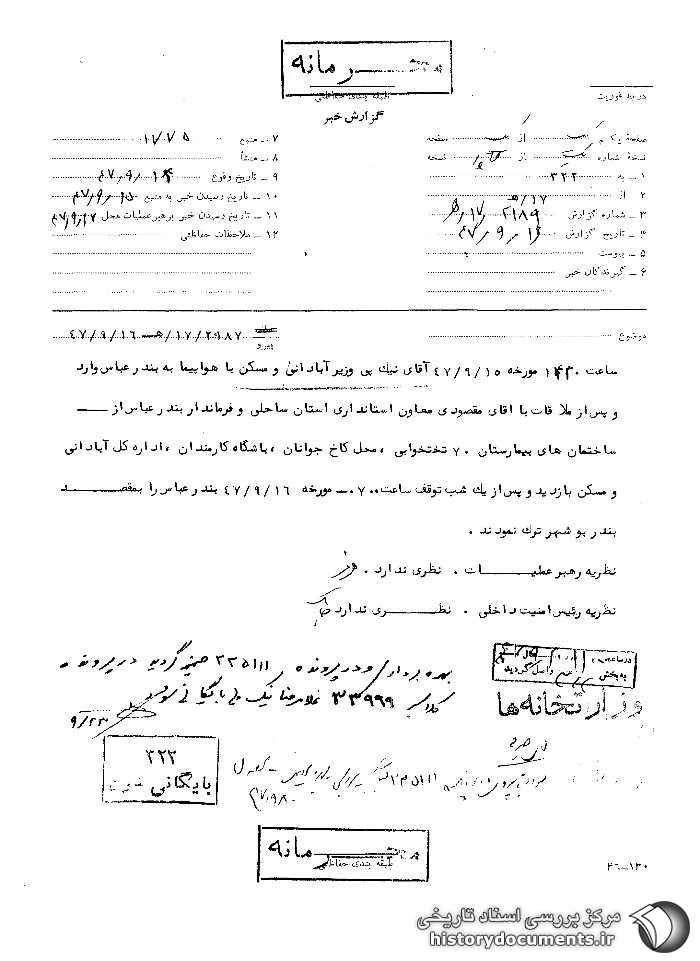 محرمانه
طبقه بندی حفاظتی
درجه فوریت
گزارش خبر
صفحه یکم از صفحه
نسخه شماره از نسخه
۱ ـ به ۳۲۲
۲ از ۱۷/هـ
۳ ـ شماره گزارش ۲۱۸۹ / ۱۷ / هـ
۴ ـ تاریخ گزارش ۴۷/۹/۱۶
۵ ـ پیوست
۶ ـ گیرندگان خبر
۷ ـ منبع ۱۷۷۵
۸ ـ منشأ
۹ ـ تاریخ وقوع
۱۰ ـ تاریخ رسیدن خبر به منبع ۴۷/۹/۱۵
۱۱ ـ تاریخ رسیدن خبر برهبر عملیات محل
۱۲ ـ ملاحظات حفاظتی
موضوع
پیرو ۲۱۸۷/۱۷/هـ ۴۷/۹/۱۶
ساعت ۱۴۳۰ مورخه ۴۷/۹/۱۵ آقای نیک پی وزیر آبادانی و مسکن با هواپیما به بندرعباس وارد
و پس از ملاقات با اقای مقصودی معاون استانداری استان ساحلی و فرماندار بندرعباس از
ساختمان های بیمارستان ۷۰ تختخوابی ، محل کاخ جوانان ، باشگاه کارمندان ، اداره کل آبادانی
و مسکن بازدید و پس از یک شب توقف ساعت ۰۷۰۰ مورخه ۴۷/۹/۱۶ بندرعباس را بمقصد
بندر بوشهر ترک نمودند .
نظریه رهبر عملیات . نظری ندارد .
نظریه رئیس امنیت داخلی . نظری ندارد
بهره برداری و در پرونده ۳۳۵۱۱۱ ضمیمه گردید در پرونده
کلاسه ۳۳۹۹۹ غلامرضا نیک پی بایگانی شود
۹/۲۳
در ساعت
به بخش واصل گردید
وزارتخانه ها
۳۲۲
بایگانی شود
محرمانه
طبقه بندی حفاظتی
۴۶ــ۱۳۰
مرکز بررسی اسناد تاریخی
historydocuments.ir